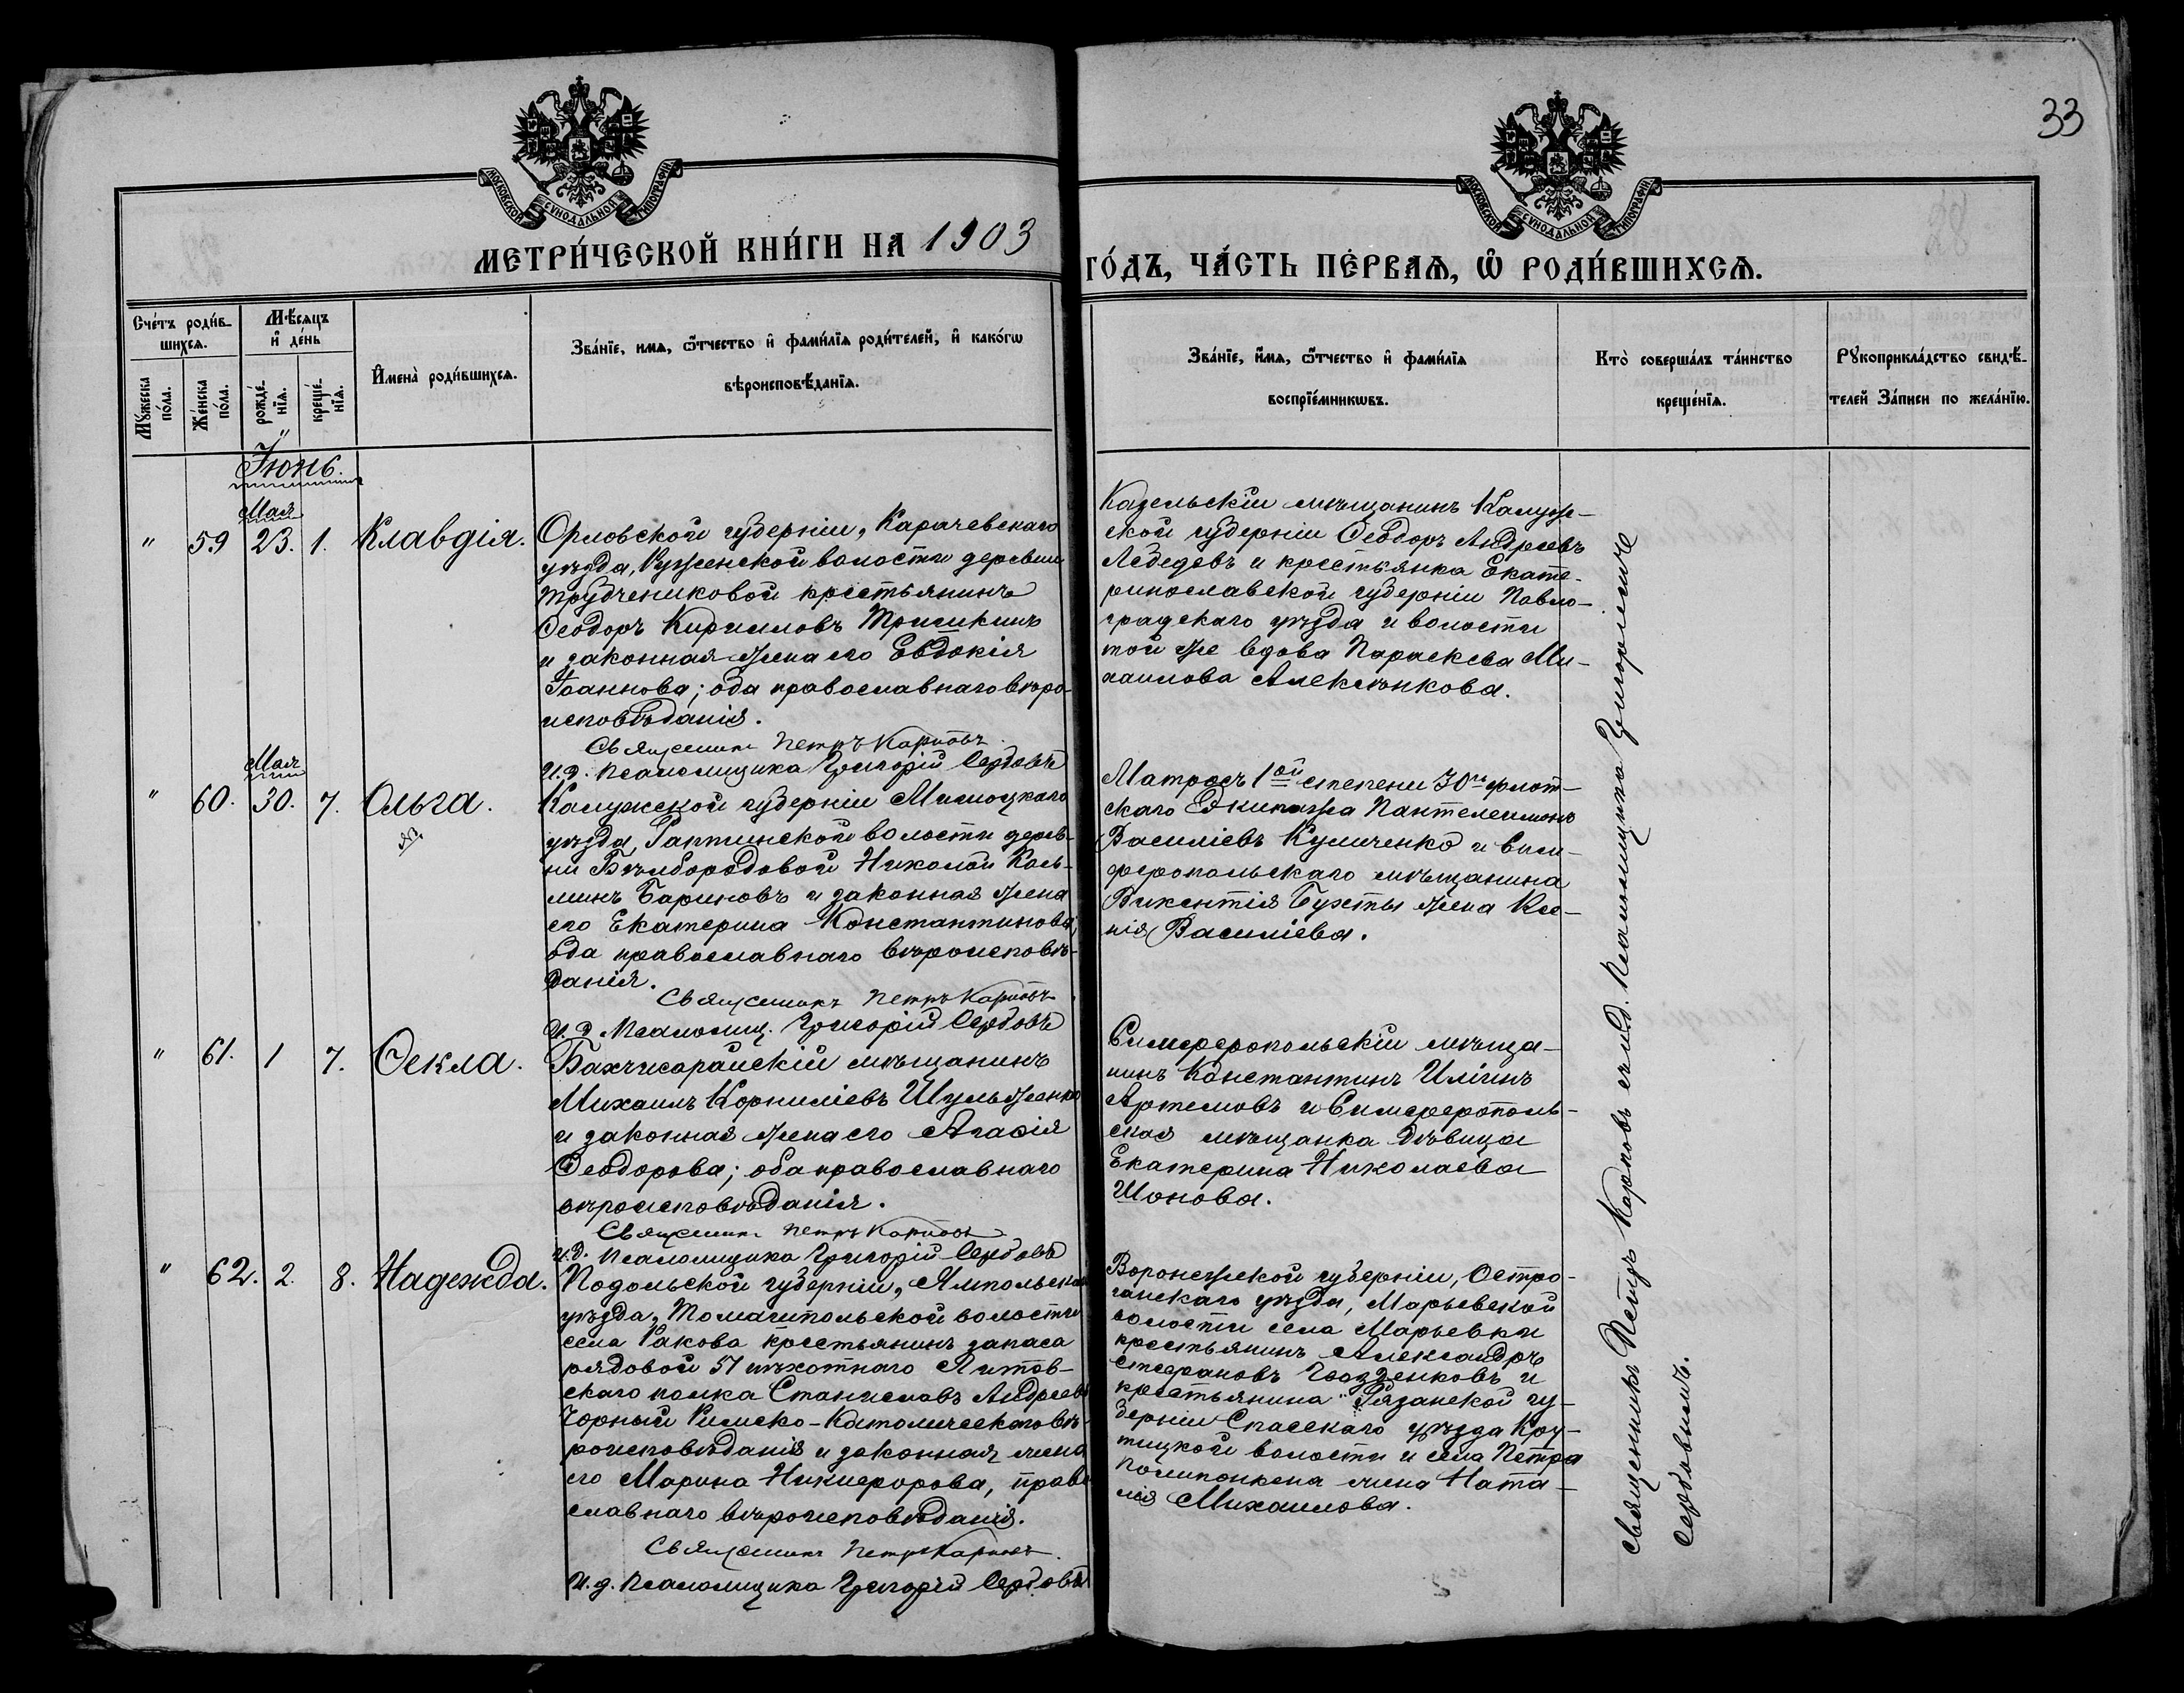 33
МОСКОВСКОЙ СУНОДАЛЬНОЙ ТИПОГРАФІИ
МОСКОВСКОЙ СУНОДАЛЬНОЙ ТИПОГРАФІИ
МЕТРИ́ЧЕСКОЙ КНИ́ГИ НА 1903
ГО́ДЪ, ЧА́СТЬ ПЕ́РВАЯ, Ѡ РОДИ́ВШИХСЯ.
Сче́тъ роди́в-
шихся.
Мѣ́сяцъ
и де́нь
Мꙋ́жеска
по́ла.
Же́нска
по́ла.
рожде́-
нїя.
креще́-
нїя.
Имена̀ роди́вшихся.
Зва́нїе, имя, ѻ҆́тчество и фами́лїя роди́телей, и како́гѡ
вѣроисповѣ́данїя.
Зва́нїе, имя, ѻ҆́тчество и фами́лїя
воспрїе́мникѡвъ.
Кто̀ соверша́лъ та́инство
креще́нїя.
Рꙋкоприкла́дство свидѣ́-
телей за́писи по жела́нїю.
Іюнь.
Мая
" 59 23. 1. Клавдія.
Орловской губерніи, Карачевскаго
уѣзда, Руженской волости деревни
Трубчениковой крестьянинъ
Ѳеодоръ Кирилловъ Тришкинъ
и законная жена его Евдокія
Іоаннова; оба православнаго вѣро-
исповѣданія.
Священникъ Петръ Карповъ
И.д. псаломщика Григорій Сербовъ
Козельскій мѣщанинъ Калуж-
ской губерніи Ѳеодоръ Андреевъ
Лебедевъ и крестьянка Екате-
ринославской губерніи Павло-
градскаго уѣзда и волости
той же вдова Параскева Ми-
хаилова Алексѣнкова.
Мая
" 60. 30. 7. Ольга.
Калужской губерніи Мосто
уѣзда, волости дерев-
ни Бѣлбородовой Николай Козь-
минъ Bариновъ и законная жена
его Екатерина Константинова;
оба православнаго вѣроисповѣ-
данія.
Священникъ Петръ Карповъ
И.д. Псаломщ. Григорій Сербовъ
Матросъ 1ой степени 30го флот-
скаго Экипажа Пантелеимонъ
Василіевъ Куличенко и Сим-
феропольскаго мѣщанина
Викентія Бухты жена Ксе-
нія Василіева.
" 61. 1 7. Ѳекла.
Бахчисарайскій мѣщанинъ
Михаилъ Корниліевъ Шульженко
и законная жена его Агаѳія
Ѳеодорова; оба православнаго
вѣроисповѣданія.
Священникъ Петръ Карповъ
И.д. Псаломщика Григорій Сербовъ
Симферопольскій мѣща-
нинъ Константинъ Иліинъ
Артемовъ и Симферополь-
ская мѣщанка дѣвица
Екатерина Николаева
Шонова.
" 62. 2. 8. Надежда.
Подольской губерніи, Ямпольска
уѣзда, Томашпольской волости
села Ракова крестьянинъ запаса
рядовой 51 пѣхотнаго Литов-
скаго полка Станиславъ Андреевъ
Чорный Римско-Католическаго вѣ-
роисповѣданія и законная жена
его Марина Никифорова, право-
славнаго вѣроисповѣданія.
Священникъ Петръ Карповъ
И.д. псаломщика Григорій Сербовъ
Воронежской губерніи, Остро-
гожскаго уѣзда, Марьевской
волости села Марьевки
крестьянинъ Александръ
Стефановъ Гвозденковъ и
крестьянина Рязанской гу-
берніи Спасскаго уѣзда Кру-
тицкой волости и села Петра
жена Ната-
лія Михаилова.
Священникъ Петръ Карповъ съ и.д. псаломщика Григоріемъ
Сербовымъ.